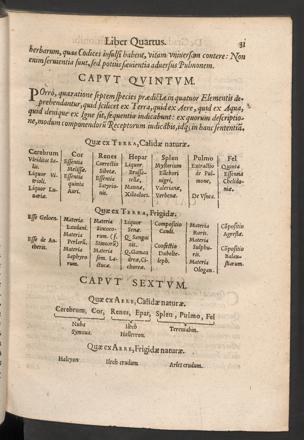 Liber Quartus. 81
herbarum, quas Codices insulsi habent, vitam vniversam contere: Non
enim serventia sunt, sed potius sævientia adversus Pulmonem.
CAPVT QVINTVM.
POrrò, qua ratione septem species prædictæ in quatuor Elementis de-
prehendantur, quid scilicet ex Terra, quid ex Aere, quid ex Aqua,
quid denique ex Igne sit, sequentia indicabunt: ex quorum descriptio-
ne, modum componendi Receptorum indicabis, idq; in hanc sententiã.
Quæ ex TERRA, Calidæ naturæ.
Cerebrum Cor Renes Hepar Splen Pulmo Fel
Viridior Sa-
lis.
Liquor Vi-
trioli.
Liquor Lu-
nariæ.
Essentia
Melissæ.
Essentia
quinta
Auri.
Correctio
Sibetæ.
Essentia
Satyrio-
nis.
Liquor
Brassa-
tellæ,
Mannæ,
Xiloaloes.
Mysterium
Ellebori
nigri,
Valerianæ,
Verbenæ.
Extractio
de Pul-
mone,
De Vsnea.
Quinta
Essentia
Chelido-
niæ.
Quæ ex TERRA, Frigidæ.
Esse Geloen.
Esse de An-
theris.
Materia
Laudani.
Materia
Perlarũ.
Materia
Saphyro-
rum.
Materia
Materia
Liquor
Senæ.
Q. Sangui
nis.
Compositio
Caudi.
Confectio
Materia
Roris.
Materia
Sulphuris.
Materia
Cõpositio
Agrestæ.
Cõpositio
Balau-
stiarum.
CAPVT SEXTVM.
Quæ ex AERE, Calidæ naturæ.
Cerebrum, Cor, Renes, Epar, Splen, Pulmo, Fel
Nuba Ilech Tereniabin.
Halcyon Ilech crudum. Aries crudum.
Quæ ex AERE, Frigidæ naturæ.